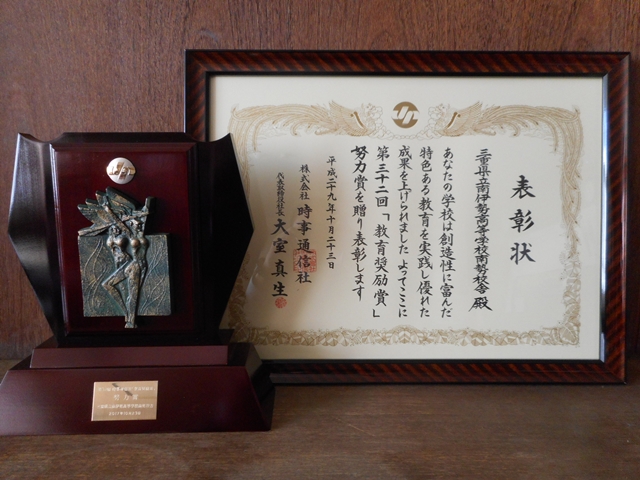 表彰状
三重県立南伊勢高等学校南勢校舎 殿
あなたの学校は創造性に富んだ
特色ある教育を実践し優れた
成果を上げられました よってここに
第三十二回「教育奨励賞」
努力賞を贈り表彰します
平成二十九年十月二十三日
株式会社 時事通信社
代表取締役社長 大室真生
努力賞